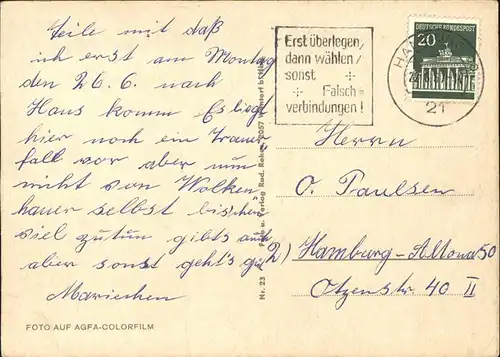 Teile mit daß
ich erst am Montag
den 26.6. nach
Haus komm Es liegt
hier noch ein Trauer
fall vor aber nun
nicht von Wolken
hauer selbst bischen
viel zutun gibts auch
aber sonst geht's gut
Mariechen
FOTO AUF AGFA-COLORFILM
Nr. 23
Foto u. Verlag Rud.
2057
Erst überlegen,
dann wählen,
sonst
Falsch=
verbindungen!
DEUTSCHE BUNDESPOST
20
HAM
21
Herrn
O. Paulsen
2) Hamburg-Altona 50
Otzenstr. 40 II